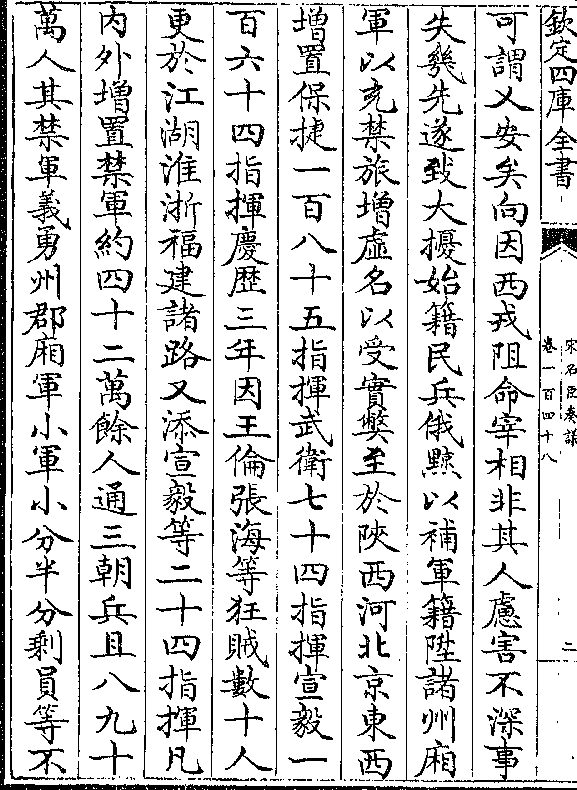 欽定四庫全書
宋名臣奏議
卷一百四十八
二
可謂乂安矣向因西戎阻命宰相非其人慮害不深事
失幾先遂致大擾始籍民兵俄黥以補軍籍陞諸州廂
軍以充禁旅增虛名以受實獘至於陜西河北京東西
增置保捷一百八十五指揮武衛七十四指揮宣毅一
百六十四指揮慶歴三年因王倫張海等狂賊數十人
更於江湖淮浙福建諸路又添宣毅等二十四指揮凡
内外增置禁軍約四十二萬餘人通三朝兵且八九十
萬人其禁軍義勇州郡廂軍小軍小分半分剩員等不